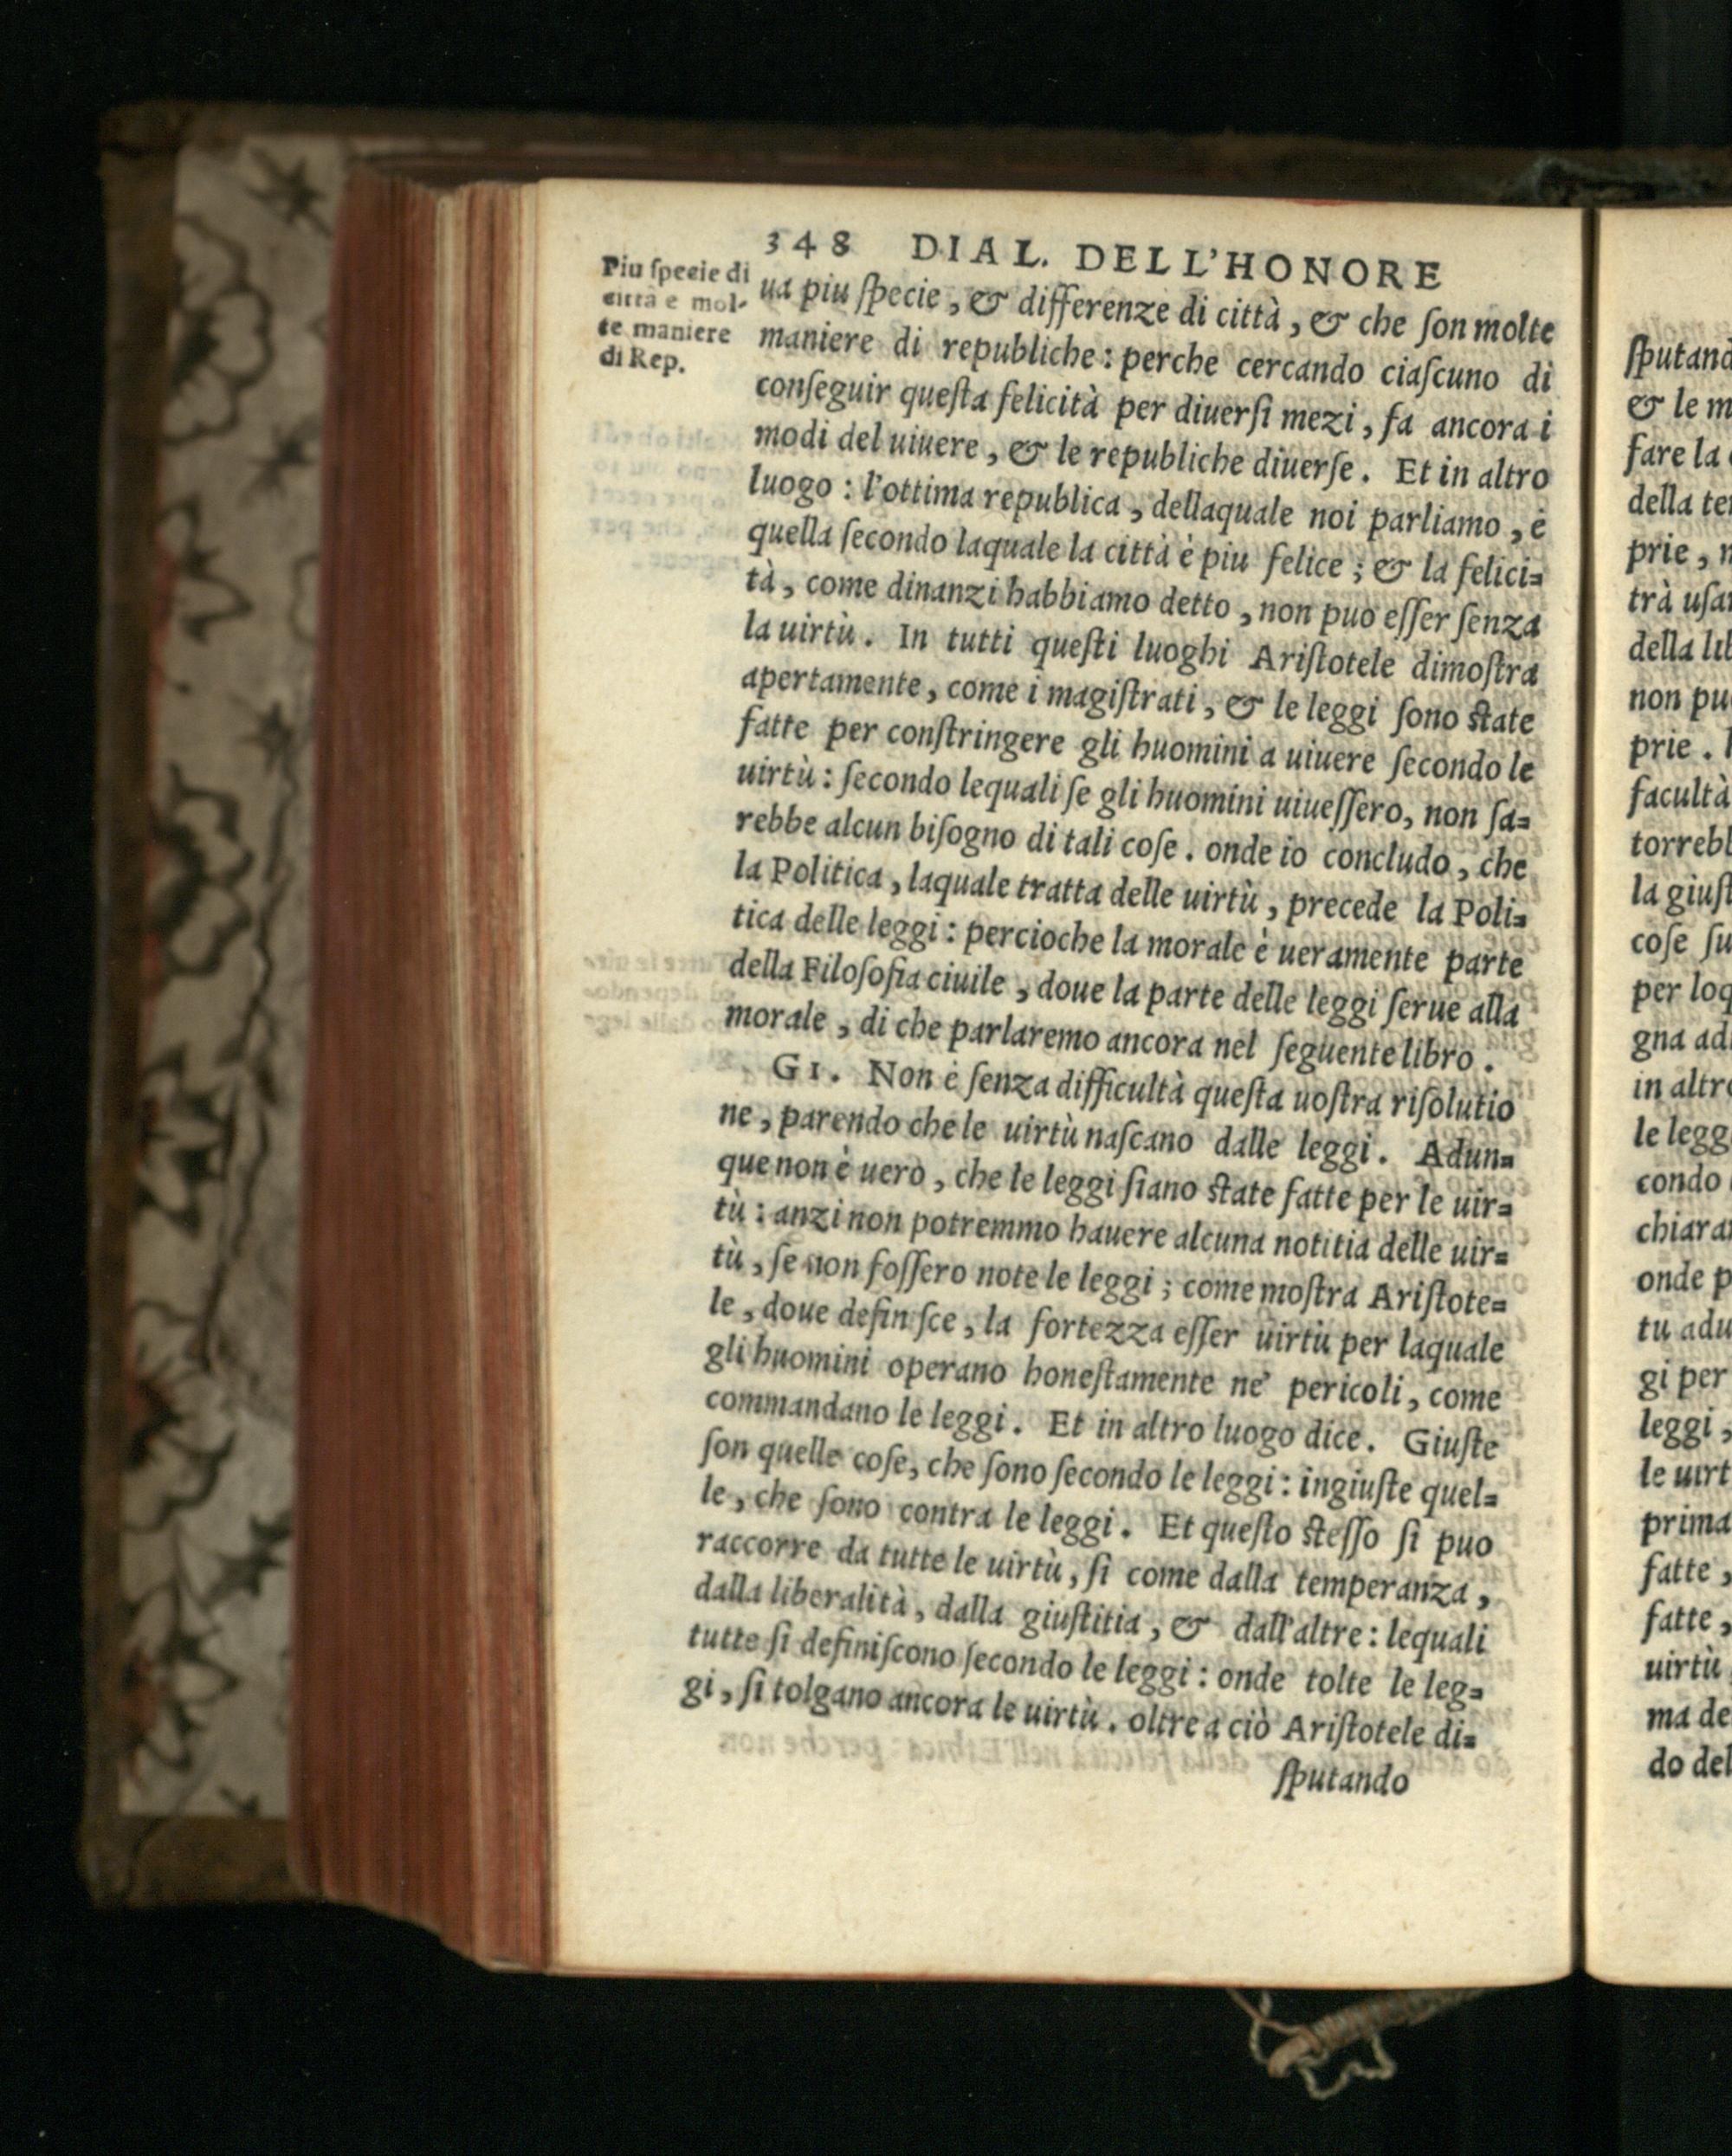 348 DIAL. DELL'HONORE
Piu specie di
città e mol-
te maniere
di Rep.
ua piu ſpecie, & differenze di città, & che ſon molte
maniere di republiche: perche cercando ciaſcuno di
conſeguir queſta felicità per diuerſi mezi, fa ancora i
modi del uiuere, & le republiche diuerſe. Et in altro
luogo: l'ottima republica, dellaquale noi parliamo, è
quella ſecondo laquale la città è piu felice; & la felici=
tà, come dinanzi habbiamo detto, non puo eſſer ſenza
la uirtù. In tutti queſti luoghi Ariſtotele dimoſtra
apertamente, come i magiſtrati, & le leggi ſono ſtate
fatte per conſtringere gli huomini a uiuere ſecondo le
uirtù: ſecondo lequali ſe gli huomini uiueſſero, non ſa=
rebbe alcun biſogno di tali coſe. onde io concludo, che
la Politica, laquale tratta delle uirtù, precede la Poli=
tica delle leggi: percioche la morale è ueramente parte
della Filoſofia ciuile, doue la parte delle leggi ſerue alla
morale, di che parlaremo ancora nel ſeguente libro.
GI. Non è ſenza difficultà queſta uoſtra riſolutio
ne, parendo che le uirtù naſcano dalle leggi. Adun=
que non è uero, che le leggi ſiano ſtate fatte per le uir=
tù: anzi non potremmo hauere alcuna notitia delle uir=
tù, ſe non foſſero note le leggi; come moſtra Ariſtote=
le, doue defin ſce, la fortezza eſſer uirtù per laquale
gli huomini operano honeſtamente ne' pericoli, come
commandano le leggi. Et in altro luogo dice. Giuſte
ſon quelle coſe, che ſono ſecondo le leggi: ingiuſte quel=
le, che ſono contra le leggi. Et queſto ſteſſo ſi puo
raccorre da tutte le uirtù, ſi come dalla temperanza,
dalla liberalità, dalla giuſtitia, & dall'altre: lequali
tutte ſi definiſcono ſecondo le leggi: onde tolte le leg=
gi, ſi tolgano ancora le uirtù. oltre a ciò Ariſtotele di=
ſputando
ſputand
& le m
fare la
della te
prie, n
trà uſa
della li
non pu
prie.
facultà
torreb
la giuſt
coſe ſu
per loq
gna ad
in altr
le legg
condo
chiara
onde p
tu adu
gi per
leggi,
le uirt
prima
fatte,
fatte,
uirtù
ma de
do del